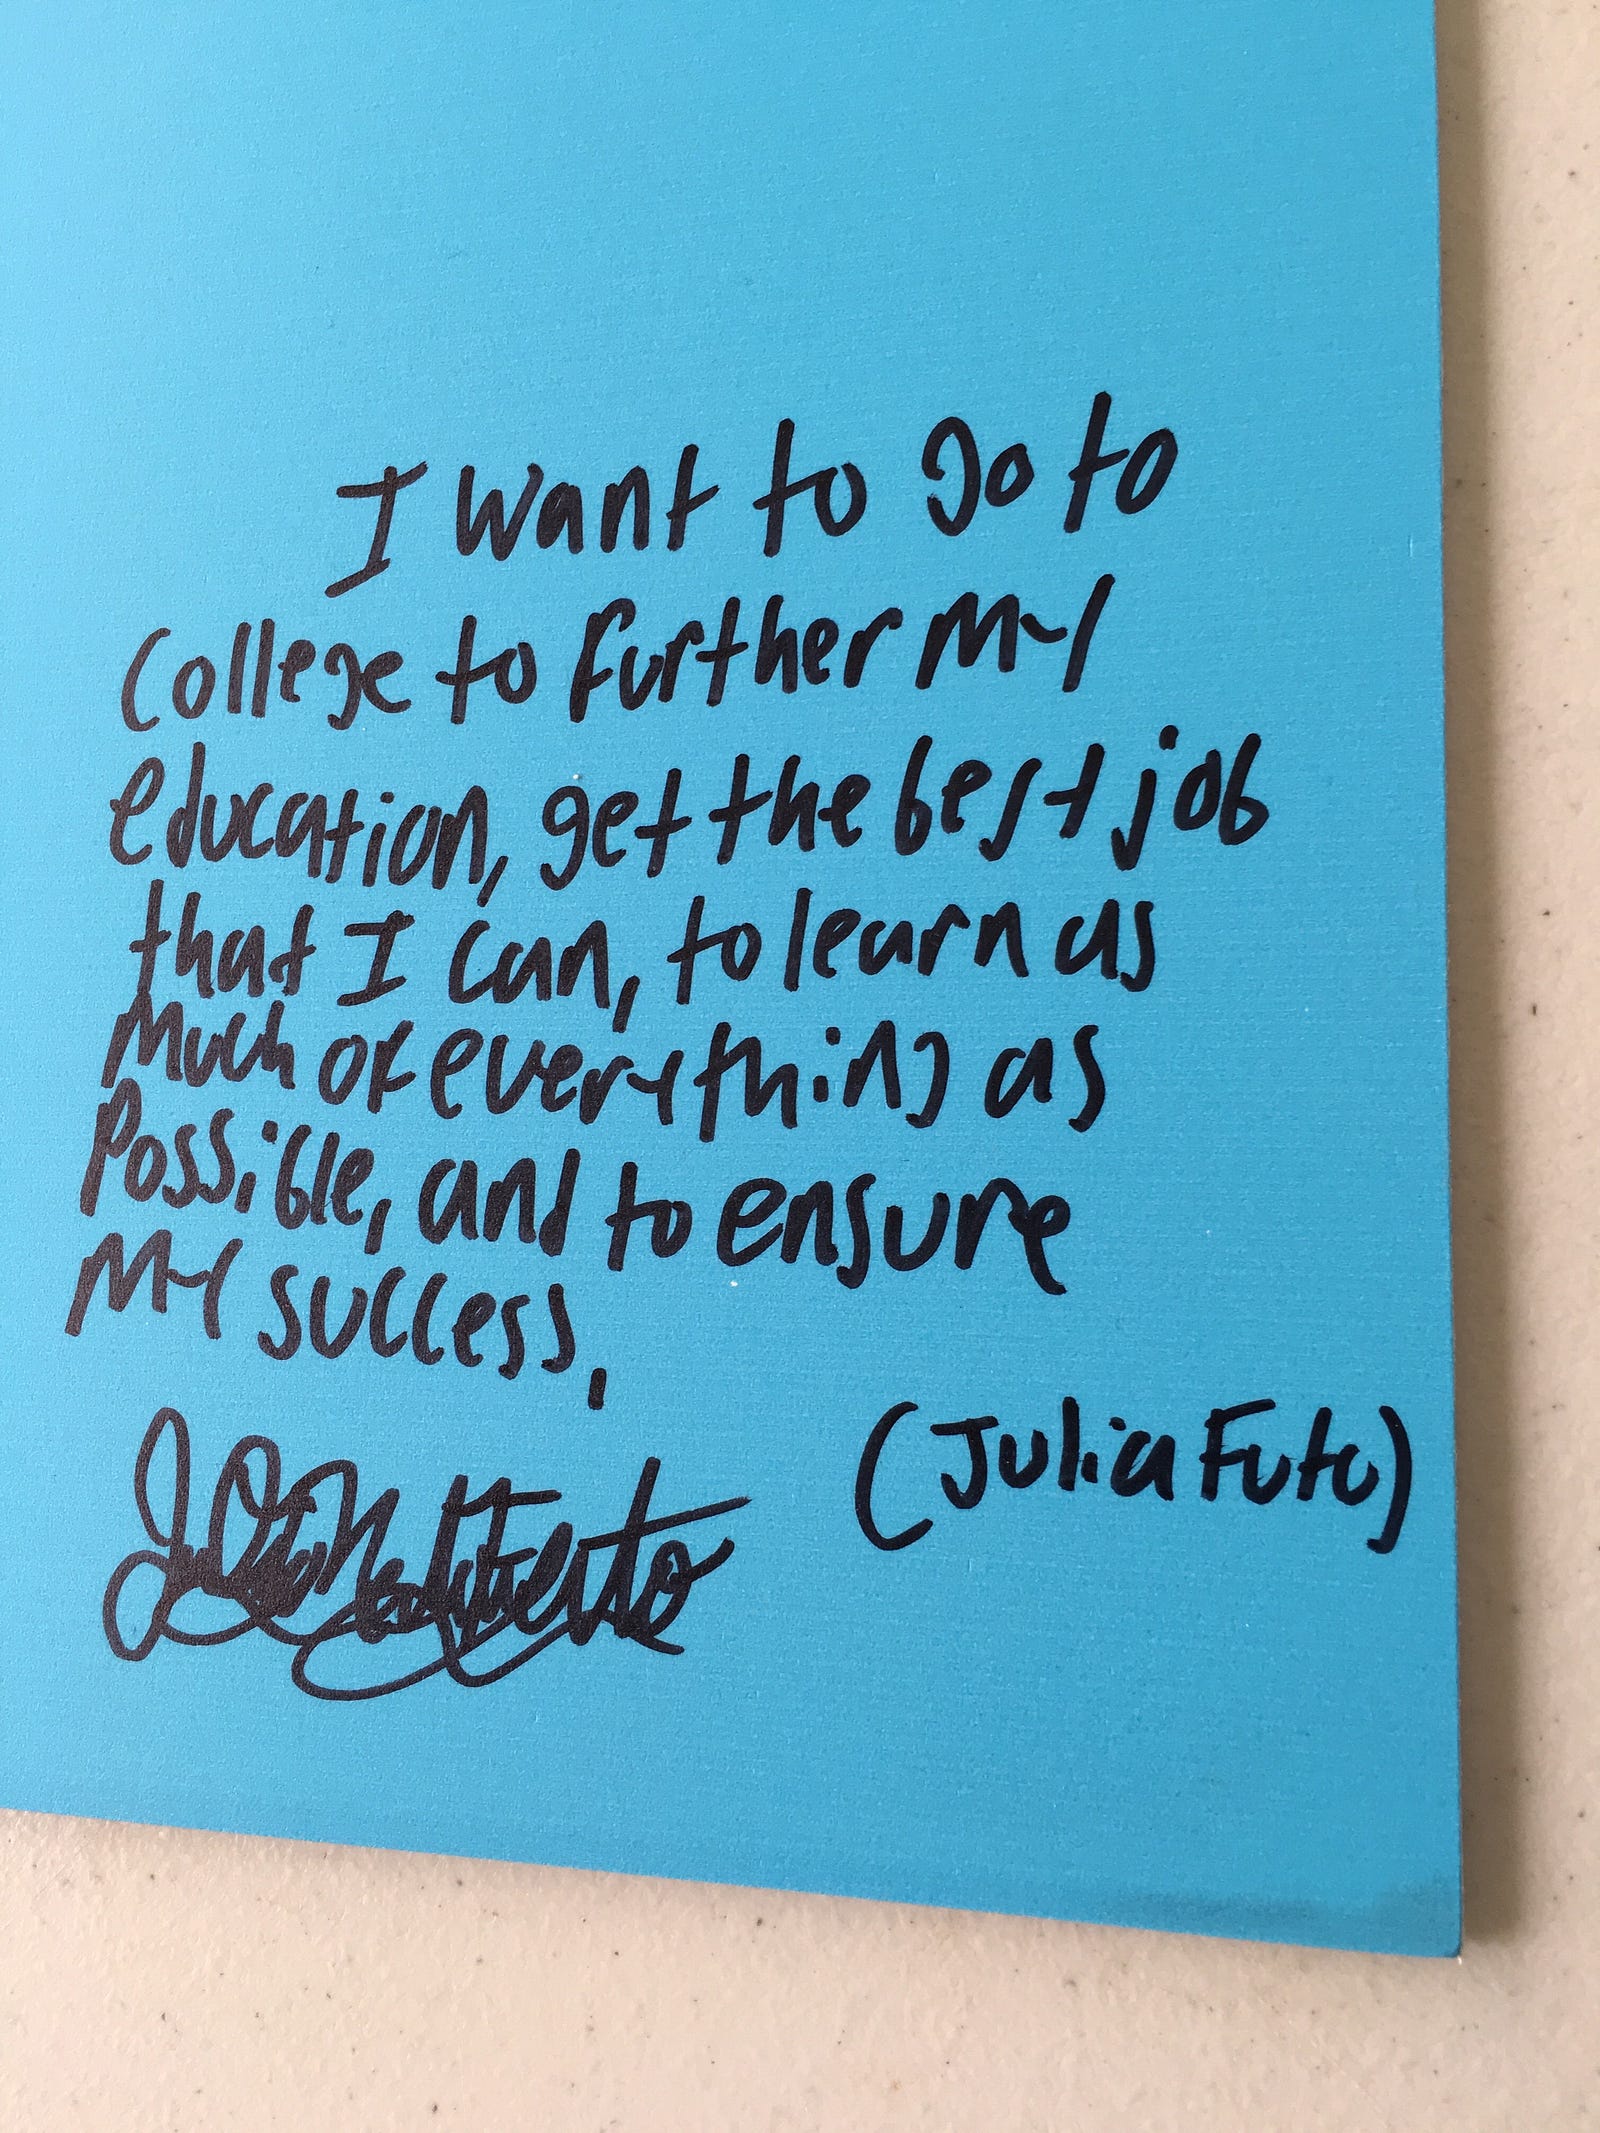 I want to go to
College to further my
education, get the best job
that I can, to learn as
much of everything as
possible, and to ensure
my success,
(Julia Futo)